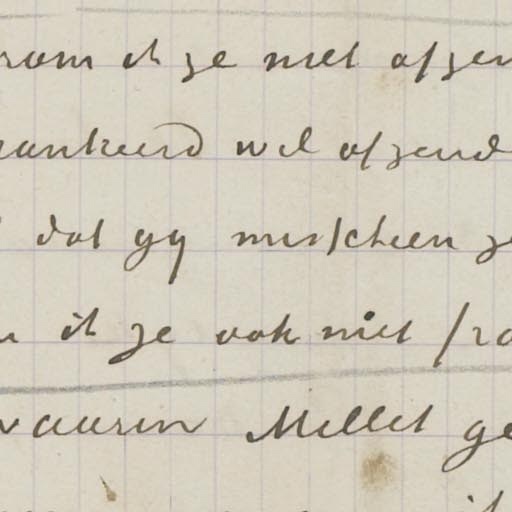 rom ik ze niet afzen
rankeerd wil afzend
dat gy misschien z
ik ze ook niet fra
waarin Millet ge